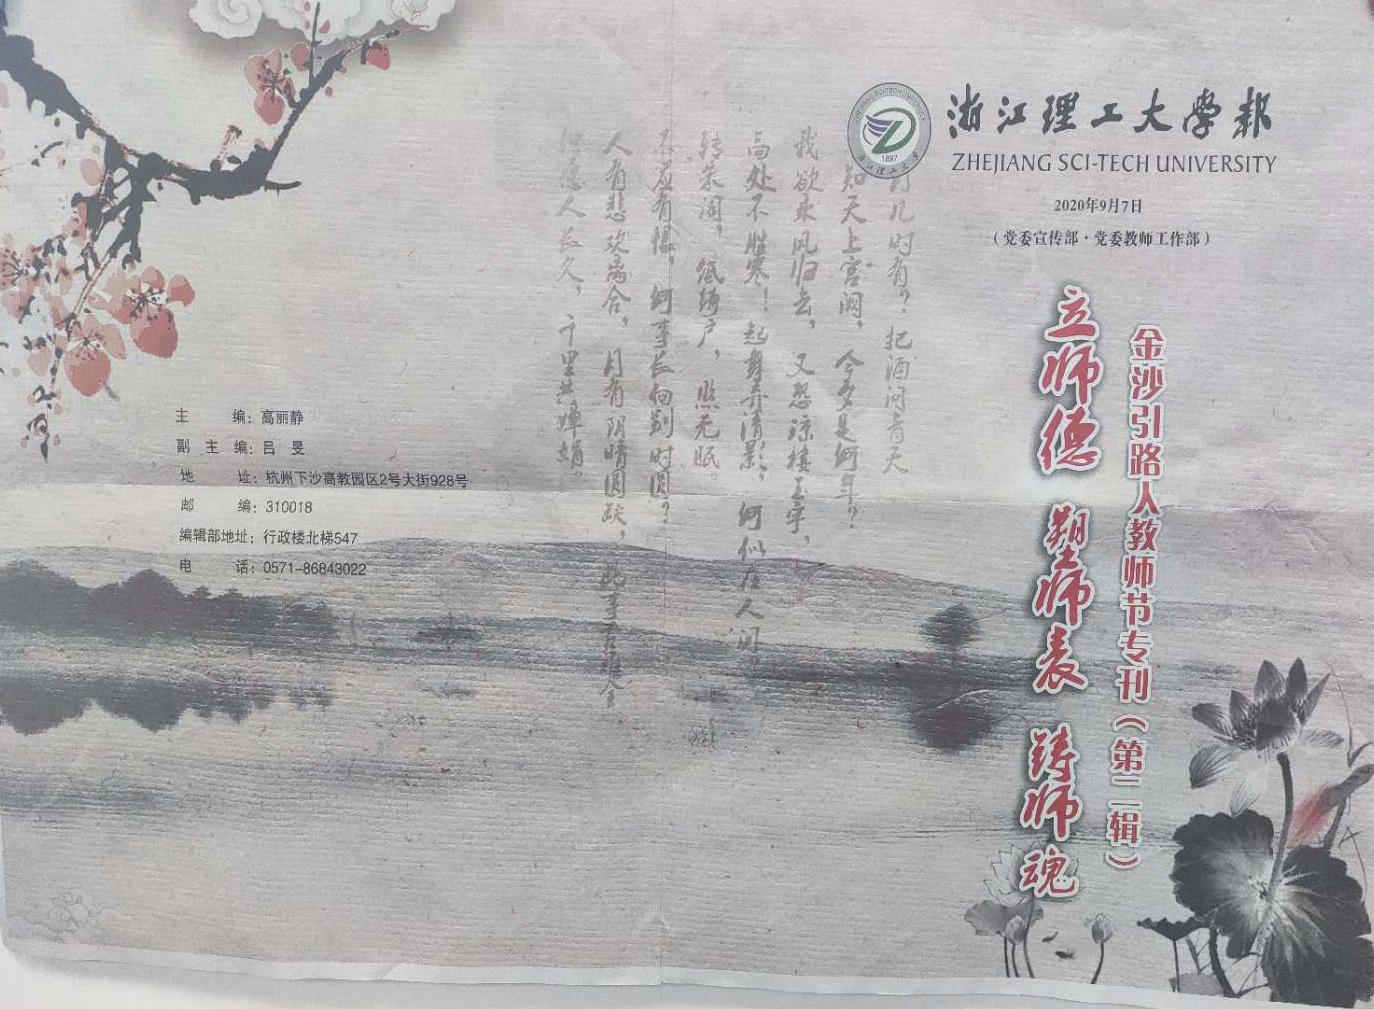 浙江理工大学报
ZHEJIANG SCI-TECH UNIVERSITY
2020年9月7日
（党委宣传部·党委教师工作部）
金沙引路人教师节专刊（第二辑）
立师德 塑师表 铸师魂
月几时有？把酒问青天
知天上宫阙，今夕是何年？
我欲乘风归去，又恐琼楼玉宇，
高处不胜寒！起舞弄清影，何似在人间
转朱阁，低绮户，照无眠。
不应有恨，何事长向别时圆？
人有悲欢离合，月有阴晴圆缺，此事古难全
但愿人长久，千里共婵娟。
主编：高丽静
副主编：吕旻
地址：杭州下沙高教园区2号大街928号
邮编：310018
编辑部地址：行政楼北梯547
电话：0571-86843022
1897